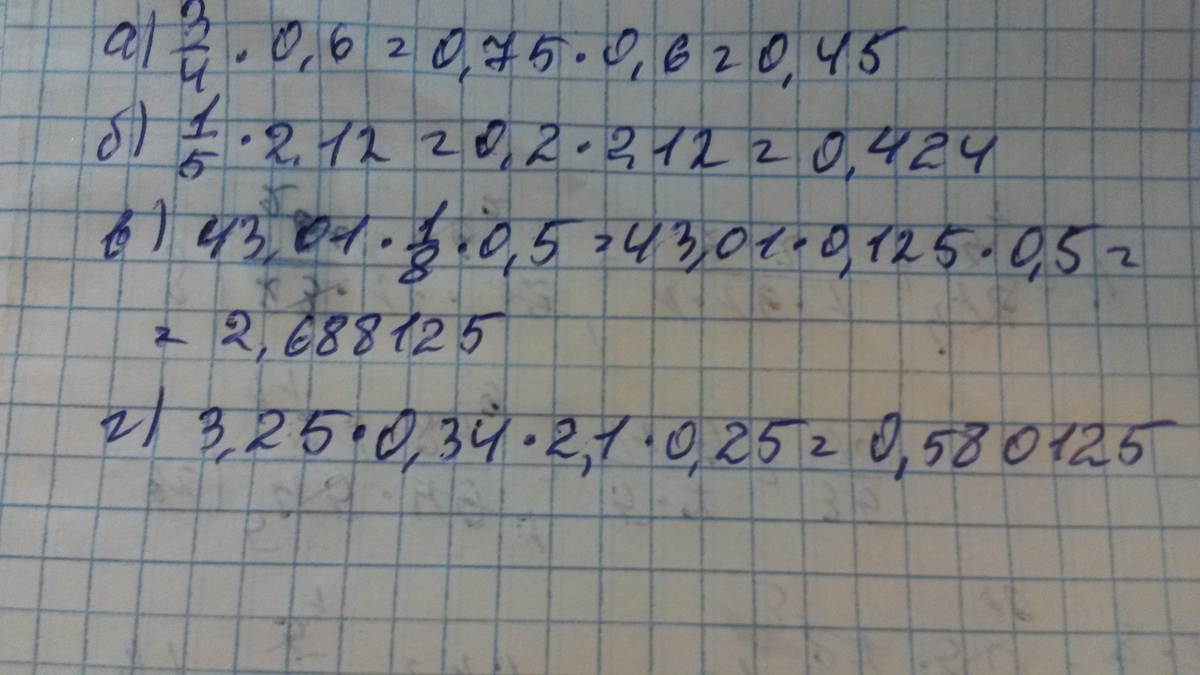 а) 3/4 · 0,6 = 0,75 · 0,6 = 0,45
б) 1/5 · 2,12 = 0,2 · 2,12 = 0,424
в) 43,01 · 1/8 · 0,5 = 43,01 · 0,125 · 0,5 =
= 2,688125
г) 3,25 · 0,34 · 2,1 · 0,25 = 0,580125